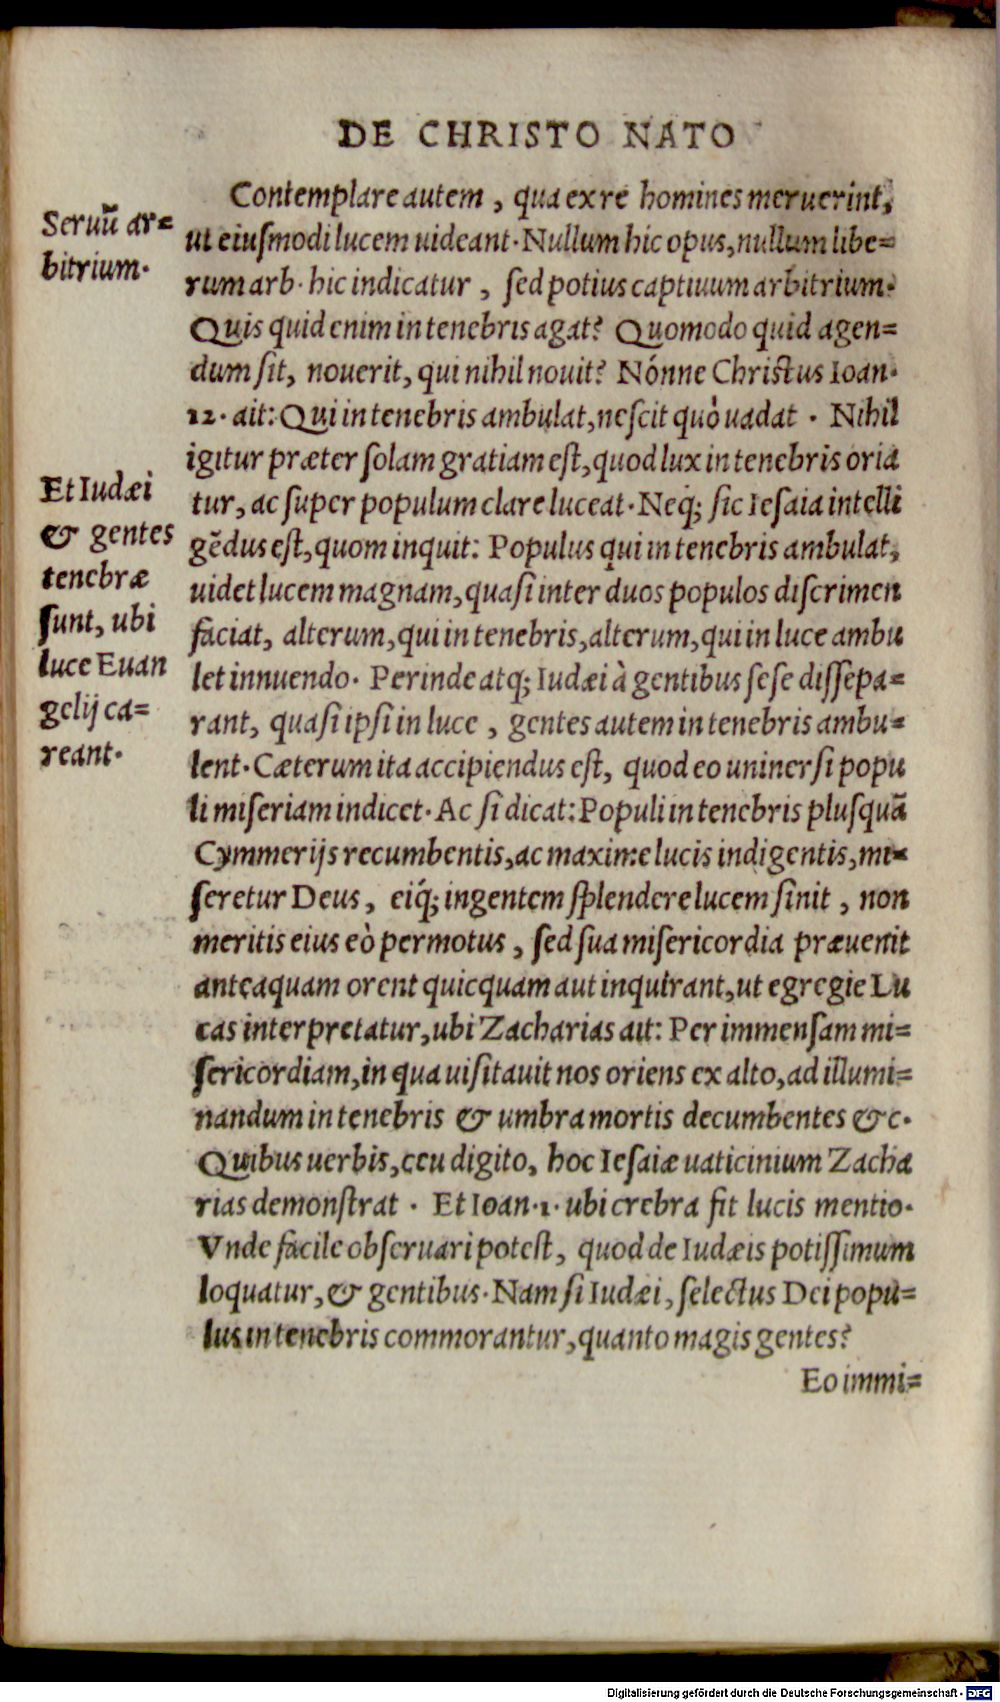 DE CHRISTO NATO
Seruũ ar=
bitrium.
Et Iudæi
& gentes
tenebræ
sunt, ubi
luce Euan
gelij ca=
reant.
Contemplare autem, qua ex re homines meruerint,
ut eiusmodi lucem uideant. Nullum hic opus, nullum libe=
rum arb. hic indicatur, sed potius captiuum arbitrium.
Quis quid enim in tenebris agat? Quomodo quid agen=
dum sit, nouerit, qui nihil nouit? Nónne Christus Ioan.
12. ait: Qui in tenebris ambulat, nescit quò uadat. Nihil
igitur præter solam gratiam est, quod lux in tenebris oria
tur, ac super populum clare luceat. Neq; sic Iesaia intelli
gẽdus est, quom inquit: Populus qui in tenebris ambulat,
uidet lucem magnam, quasi inter duos populos discrimen
faciat, alterum, qui in tenebris, alterum, qui in luce ambu
let innuendo. Perinde atq; Iudæi à gentibus sese dissepa=
rant, quasi ipsi in luce, gentes autem in tenebris ambu=
lent. Cæterum ita accipiendus est, quod eo uniuersi popu
li miseriam indicet. Ac si dicat: Populi in tenebris plusquã
Cymmerijs recumbentis, ac maxime lucis indigentis, mi=
seretur Deus, eiq́; ingentem splendere lucem sinit, non
meritis eius eò permotus, sed sua misericordia præuenit
anteaquam orent quicquam aut inquirant, ut egregie Lu
cas interpretatur, ubi Zacharias ait: Per immensam mi=
sericordiam, in qua uisitauit nos oriens ex alto, ad illumi=
nandum in tenebris & umbra mortis decumbentes &c.
Quibus uerbis, ceu digito, hoc Iesaiæ uaticinium Zacha
rias demonstrat. Et Ioan. 1. ubi crebra fit lucis mentio.
Vnde facile obseruari potest, quod de Iudæis potissimum
loquatur, & gentibus. Nam si Iudæi, selectus Dei popu=
lus in tenebris commorantur, quanto magis gentes?
Eo immi=
Digitalisierung gefördert durch die Deutsche Forschungsgemeinschaft - DFG